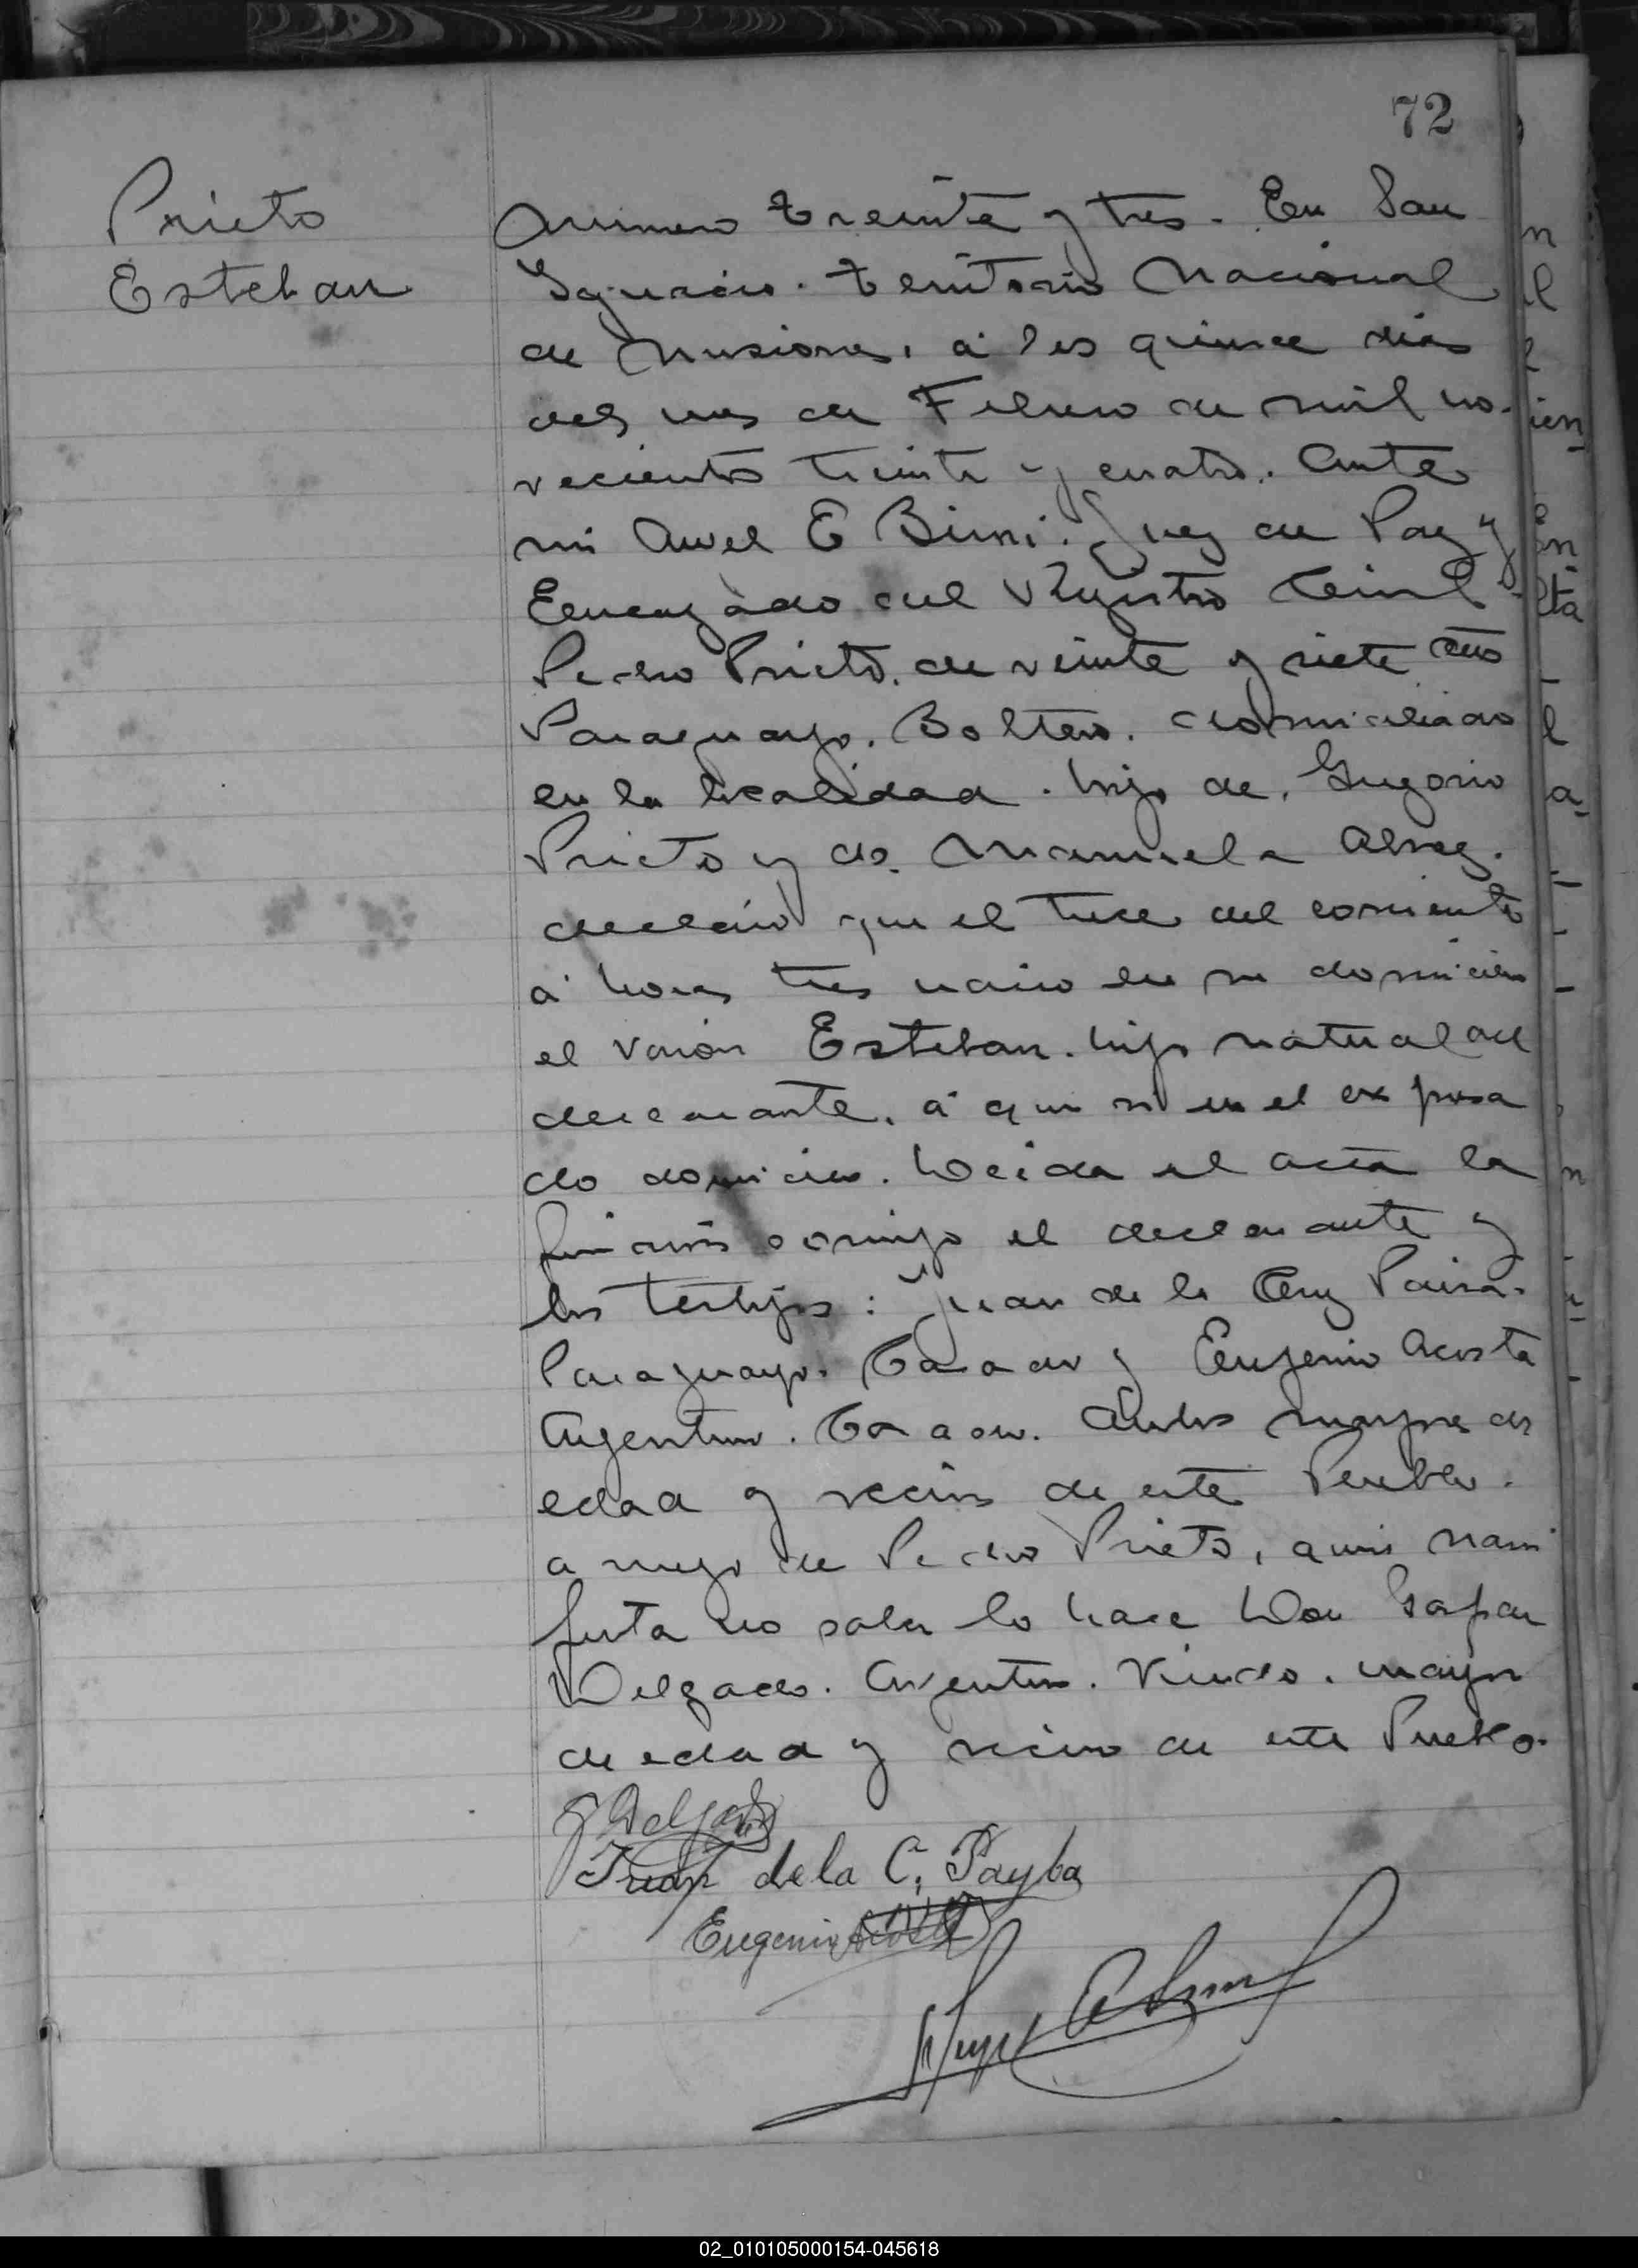 72
Prieto
Esteban
Numero treinta y tres. En San
Ygnacio. territorio Nacional
de Misiones, á los quince dias
del mes de Febrero de mil no-
vecientos treinta y cuatro. Ante
mi E Juez de Paz y
Encargado del Registro Civil
Pedro Prieto. de veinte y siete años
Paraguayo. Soltero. domiciliado
en la localidad. hijo de, Gregorio
Prieto y de Manuela
declaró que el trece del corriente
á horas tres nació en su domicilio
el varón Esteban. hijo natural del
declarante, á quien vi en el expresa
do domicilio. Leida el acta la
firmó conmigo el declarante y
los testigos: Juan de la Cruz Paiva.
Paraguayo. Casado y Eugenio Acosta
Argentino. Casado. Ambos mayores de
edad y vecinos de este Pueblo.
a ruego de Pedro Prieto, quien mani
fiesta no saber lo hace Don Gaspar
Delgado. Argentino. Viudo. mayor
de edad y vecino de este Pueblo.
G Delgado
Juan de la C. Payba
Eugenio Acosta
02_010105000154-045618